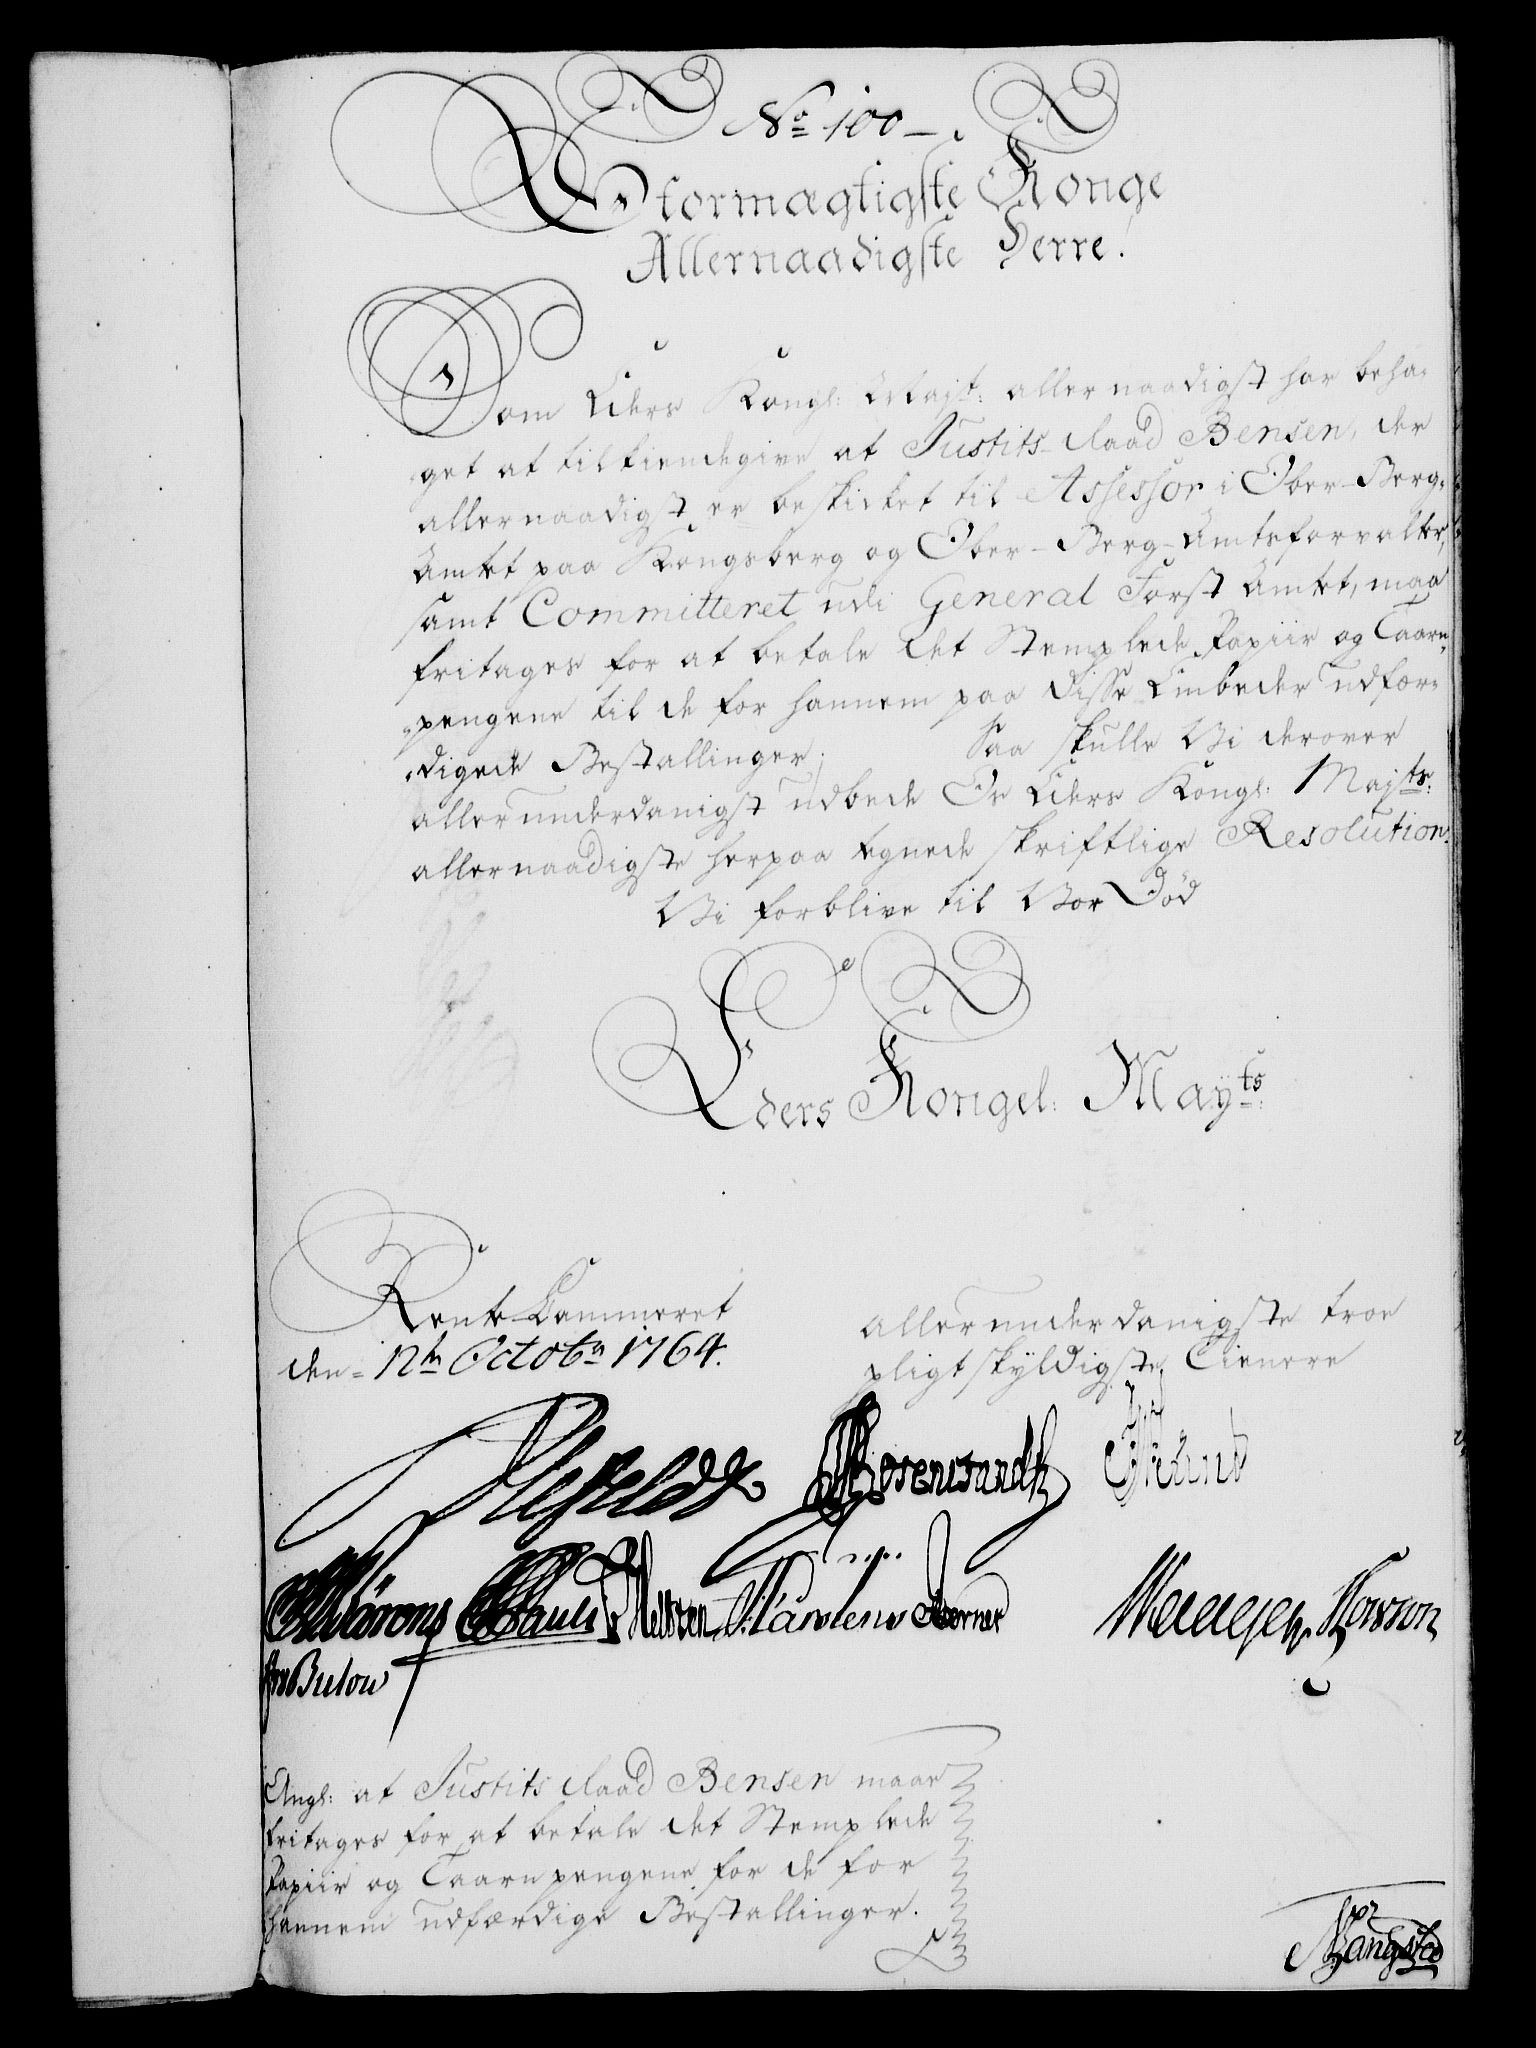 No 100 –
Stormægtigste Konge
Allernaadigste Herre!
Som Eders Kongl: Majst: allernaadigst har beha-
get at tilkiendegive at Justits-Raad Bensen, der
allernaadigst er beskicket til Assessor i Ober-Berg-
Amtet paa Kongsberg og Ober-Berg-Amtsforvalter,
samt Committeret udi General Forst Amtet, maa
fritages for at betale det Stemplede Papiir og Taarn-
pengene til de for hannem paa disse Embeder udfær-
digede Bestallinger; Saa skulle Vi derover
allerunderdanigst udbede Os Eders Kongl: Majts:
allernaadigste herpaa tegnede skriftlige Resolution.
Vi forblive til Vor Død
Eders Kongel: Mayts:
Rente-Cammeret
den 12te Octobr 1764.
allerunderdanigste troe
pligtskyldigste Tienere
Ahlefeldt Rosencrandtz
Pauli Martens Kørner
Bulow
Angl: at Justits Raad Bensen maae
fritages for at betale det Stemplede
Papiir og Taarnpengene for de for
hannem udfærdige Bestallinger.